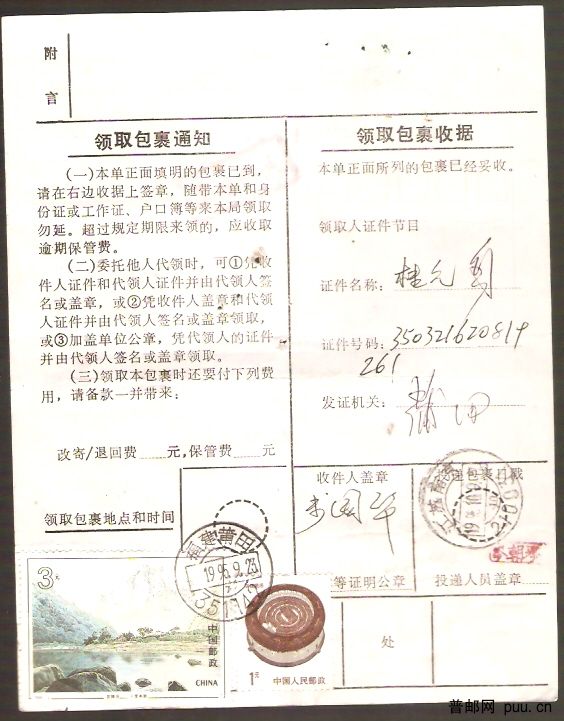 附
言
领取包裹通知
(一)本单正面填明的包裹已到,
请在右边收据上签章,随带本单和身
份证或工作证、户口簿等来本局领取
勿延。超过规定期限来领的,应收取
逾期保管费。
(二)委托他人代领时,可①凭收
件人证件和代领人证件并由代领人签
名或盖章,或②凭收件人盖章和代领
人证件并由代领人签名或盖章领取,
或③加盖单位公章,凭代领人的证件
并由代领人签名或盖章领取。
(三)领取本包裹时还要付下列费
用,请备款一并带来:
改寄/退回费 元,保管费 元
领取包裹地点和时间
领取包裹收据
本单正面所列的包裹已经妥收。
领取人证件节目
证件名称:
证件号码:350321620819
261
发证机关:莆田
收件人盖章
投递包裹日戳
等证明公章
投递人员盖章
处
福建莆田
1995.9.23
351142
3元
中国邮政
CHINA
1元
中国人民邮政
普邮网 puu.cn